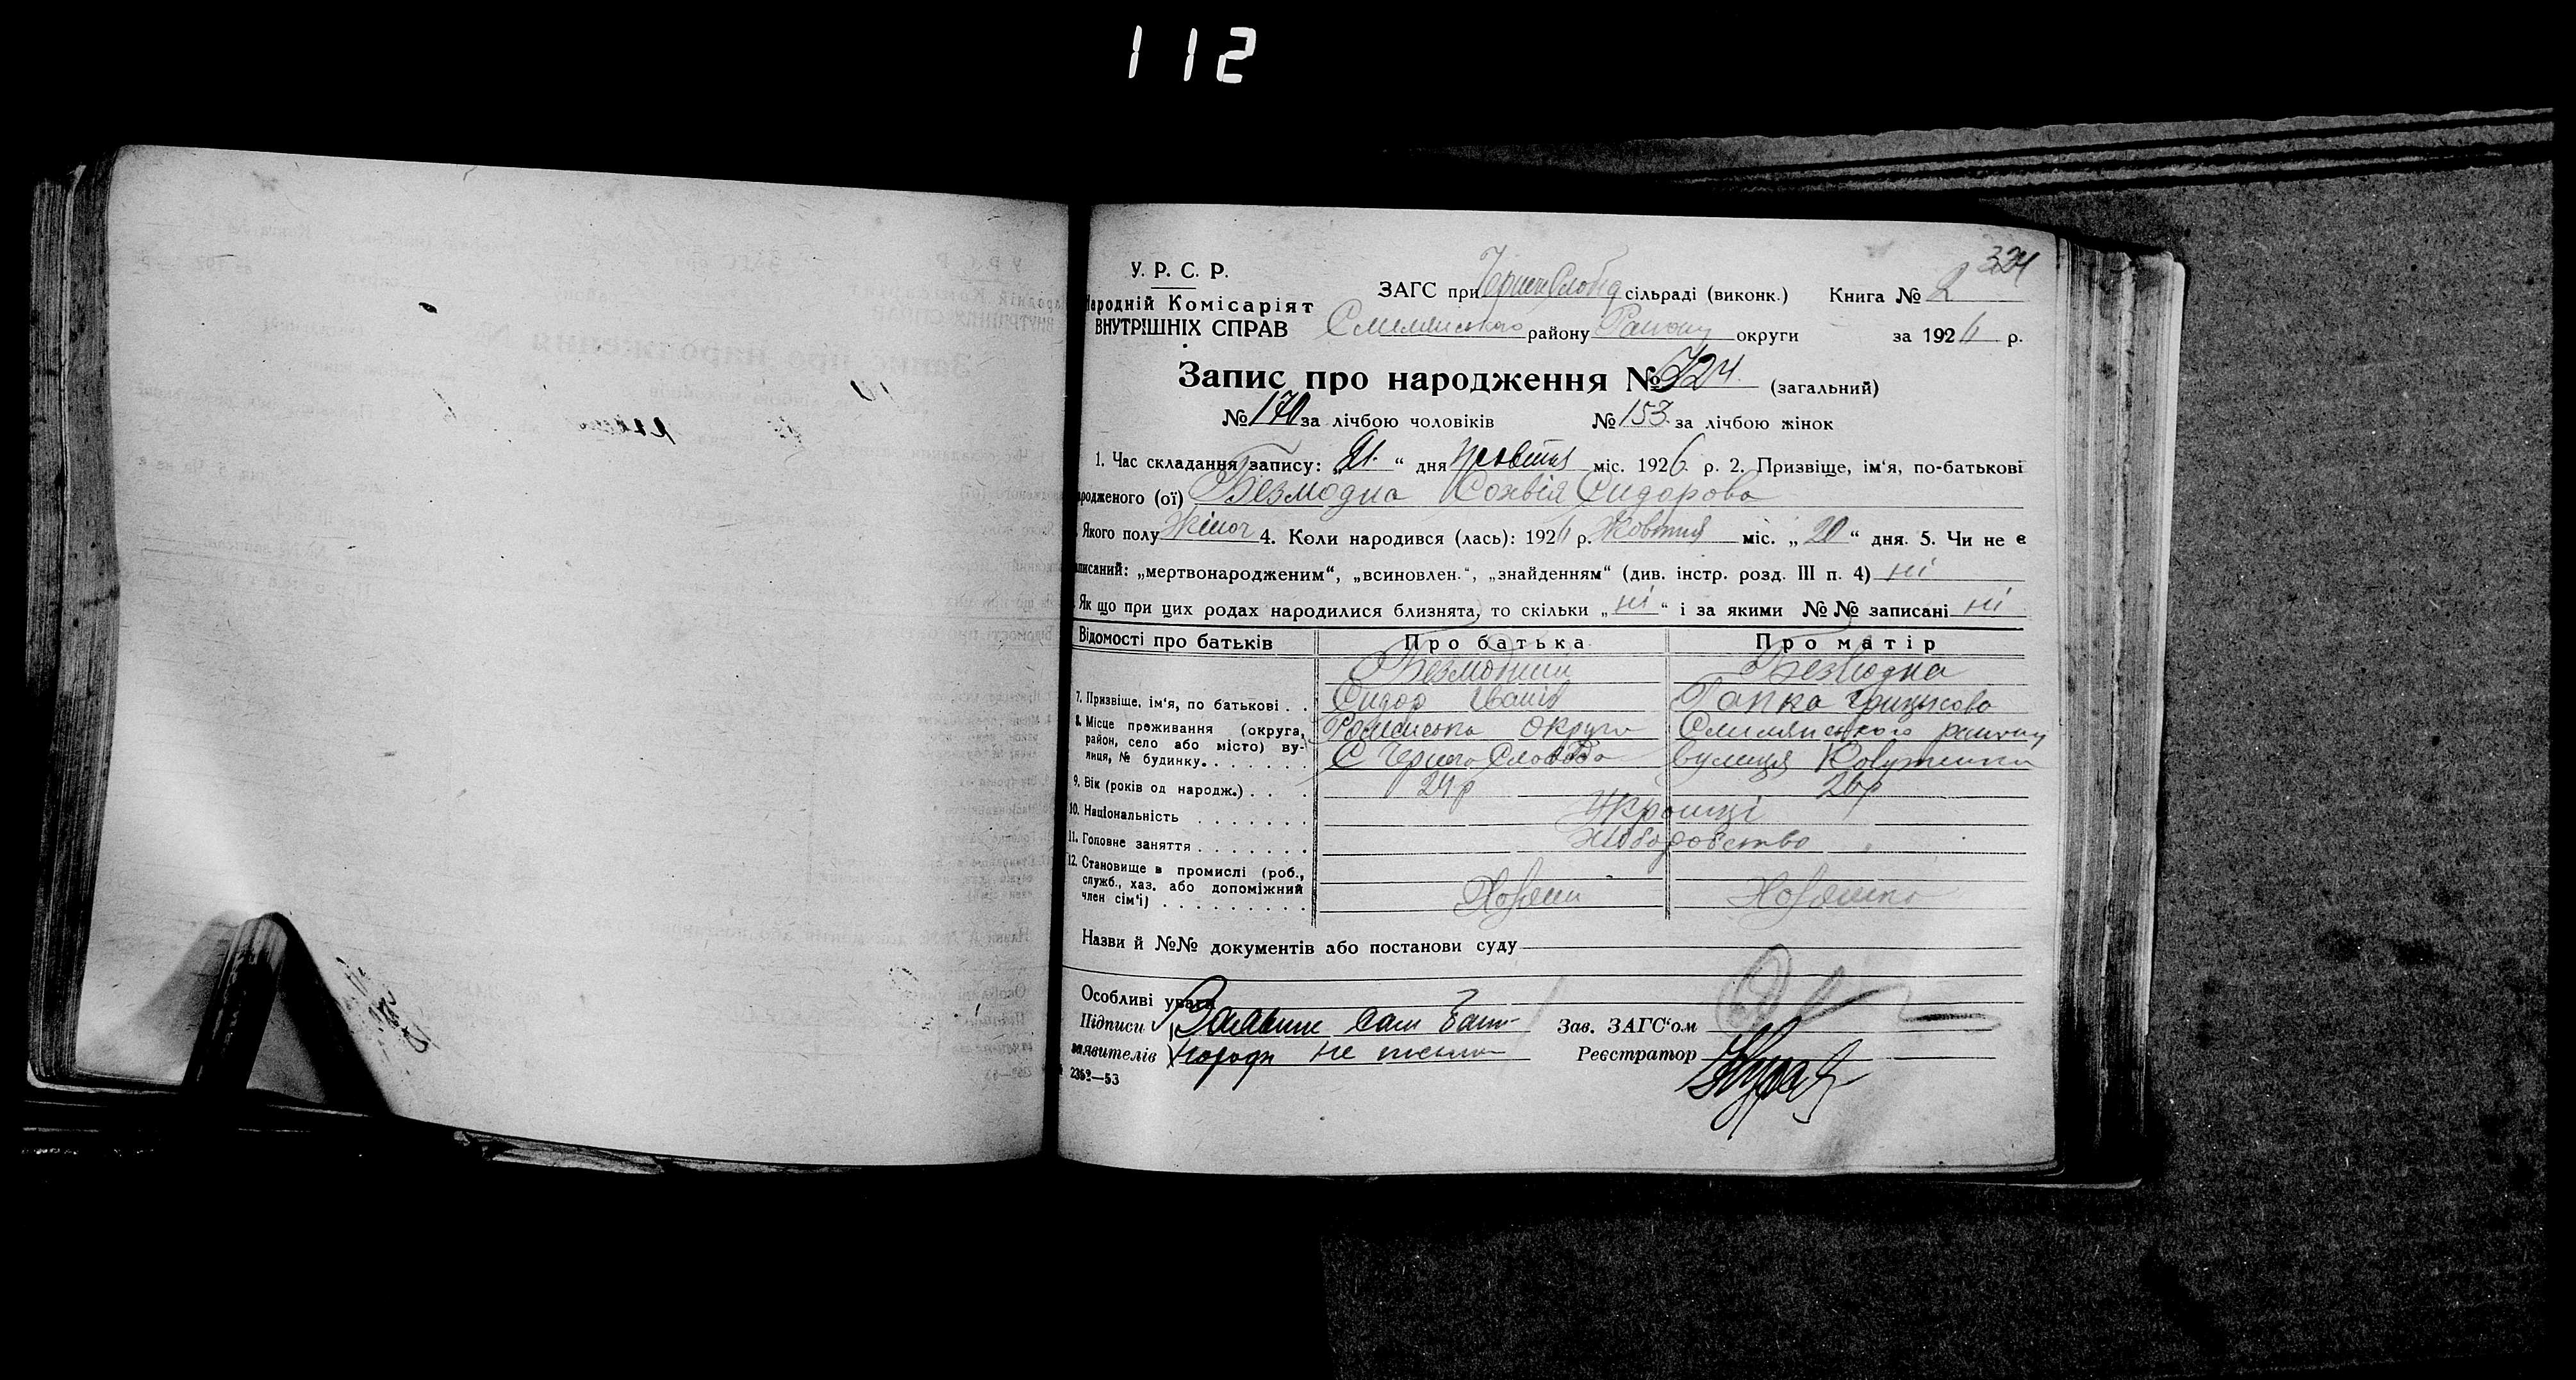 112
324
У. Р. С. Р.
Народній Комісаріят
ВНУТРІШНІХ СПРАВ
ЗАГС при сільраді (виконк.) Книга № 2
району округи за 1926 р.
Запис про народження № 324 (загальний)
№ 170 за лічбою чоловіків № 153 за лічбою жінок
1. Час складання запису: „21“ дня Жовтня міс. 1926 р. 2. Призвіще, ім‘я, по-батькові
родженого (ої) Безмодна Сохвія Сидорова
Якого полу Жіноч 4. Коли народився (лась): 1926 р. Жовтня міс. „20“ дня. 5. Чи не є
записаний: „мертвонародженим“, „всиновлен.“, „знайденням“ (див. інстр. розд. III п. 4) ні
Як що при цих родах народилися близнята, то скільки „ні“ і за якими №№ записані ні
Відомості про батьків Про батька Про матір
7. Призвіще, ім‘я, по батькові . . Сидор Іванів Гапка Грицькова
8. Місце проживання (округа, район, село або місто) вулиця, № будинку. Роменська округа
С Черна Слобода вулиця
9. Вік (років од народж.) . . . 24р 26р
10. Національність Українці
11. Головне заняття Хліборобство
12. Становище в промислі (роб.,
служб., хаз. або допоміжний
член сім‘ї) Хозяин Хозяйка
Назви й №№ документів або постанови суду
Особливі уваги
Підписи Заявив сам Зав. ЗАГС‘ом
заявителів не Реєстратор
2362—53